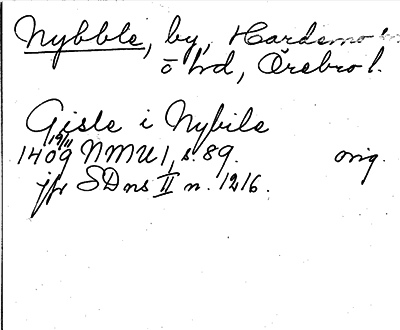 Nybble, by, Hardemo
ö hd, Örebro l.
Gisle i Nybile
19/11
1409 NMU 1, s. 89. orig.
jfr SDns II n. 1216.